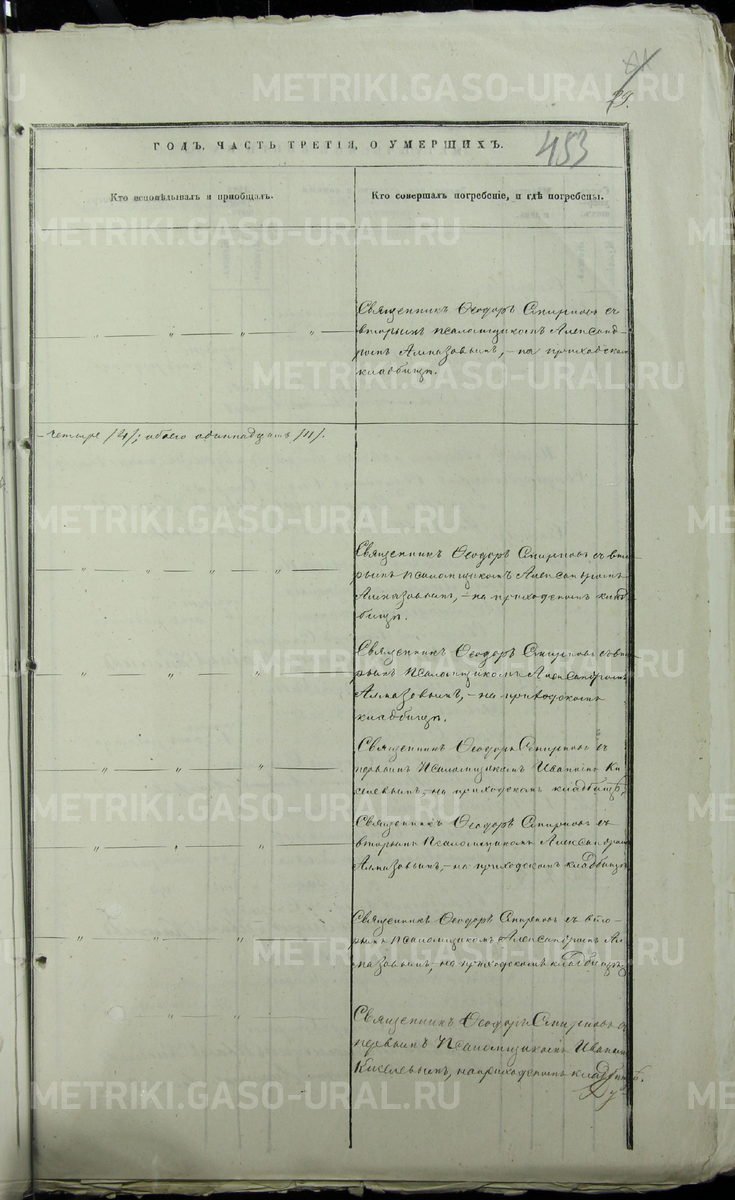 29.
ГОДЪ, ЧАСТЬ ТРЕТІЯ, О УМЕРШИХЪ.
453
Кто исповѣдывалъ и пріобщалъ.
Кто совершалъ погребеніе, и гдѣ погребены.
Священникъ Ѳеодоръ Смирновъ съ
вторымъ псаломщикомъ Александ-
ромъ Алмазовымъ, – на приходскомъ
кладбищѣ.
– четыре /4/; обоего одиннадцать /11/.
Священникъ Ѳеодоръ Смирновъ съ вто-
рымъ псаломщикомъ Александромъ
Алмазовымъ, – на приходскомъ клад-
бищѣ.
Священникъ Ѳеодоръ Смирновъ со вто-
рымъ псаломщикомъ Александромъ
Алмазовымъ, – на приходскомъ
кладбищѣ.
Священникъ Ѳеодоръ Смирновъ съ
первымъ Псаломщикомъ Иваномъ Ки-
селевымъ, на приходскомъ кладбищѣ.
Священникъ Ѳеодоръ Смирновъ съ
вторымъ Псаломщикомъ Александромъ
Алмазовымъ, – на приходскомъ кладбищѣ
Священникъ Ѳеодоръ Смирновъ съ вто-
рымъ псаломщикомъ Александромъ Ал-
мазовымъ, – на приходскомъ кладбищѣ
Священникъ Ѳеодоръ Смирновъ съ
первымъ Псаломщикомъ Иваномъ
Киселевымъ, на приходскомъ кладбищѣ.
METRIKI.GASO-URAL.RU